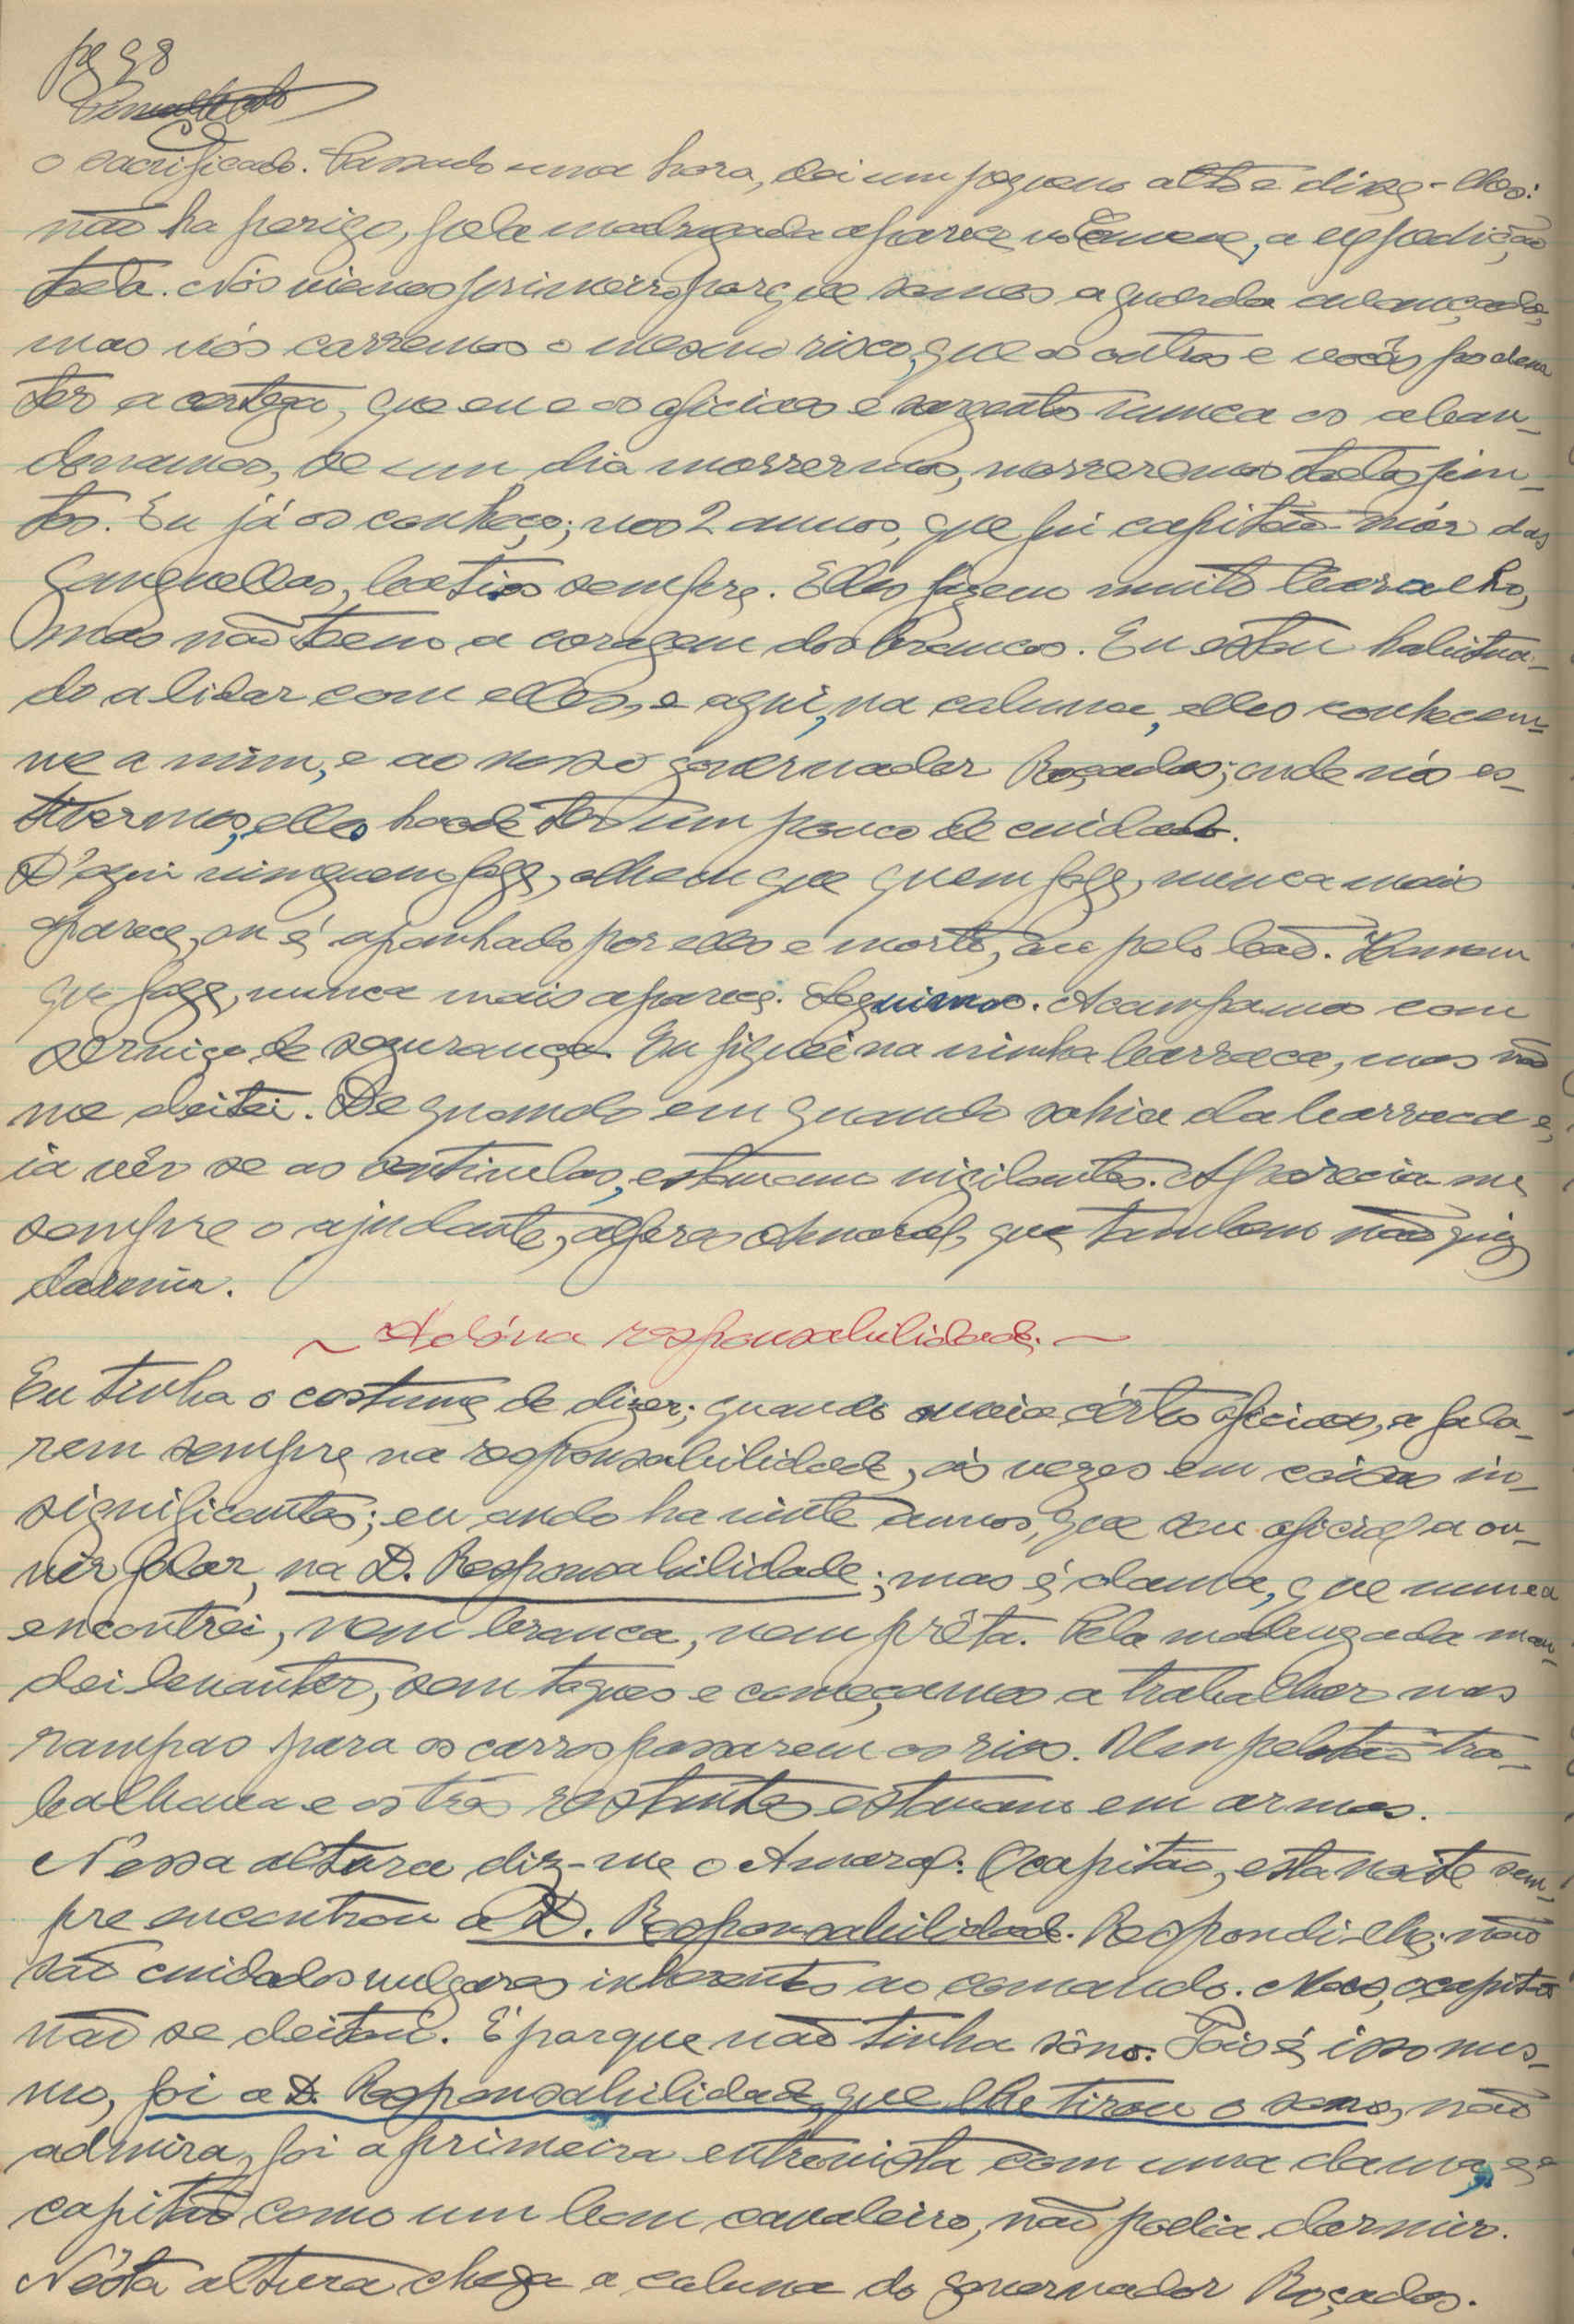 pg 98
o sacrificado. Passado uma hora, dei um pequeno alto e disse-lhes:
não ha perigo, pela madrugada aparece no a expedição
toda. Nós viemos primeiro porque somos a guarda avançada,
mas nós corremos o mesmo risco, que os outros e vocês podem
ter a certeza, que eu e os oficiaes e sargentos nunca os aban-
donamos, se um dia morrermos, morreremos todos jun-
tos. Eu já os conheço; nos 2 annos, que fui capitão-mór das
Ganguellas, batios sempre. Elles fazem muito baralho,
mas não teem a coragem dos brancos. Eu estou habitua-
do a lidar com elles, e aqui, na coluna, elles conhecem-
me a mim, e ao nosso governador Roçadas; onde nós es-
tivermos, elles hãode ter um pouco de cuidado.
D'aqui ninguem foge, olhem que quem foge, nunca mais
aparece, ou é apanhado por elles e morto, ou pelo leão. Homem
que foge, nunca mais aparece. Seguimos. Acampamos com
serviço de segurança. Eu fiquei na minha barraca, mas não
me deitei. De quando em quando sahia da barraca e,
ia vêr se as sentinelas, estavam vigilantes. Aparecia-me
sempre o ajudante, alferes Amaral, que tambem não quiz
dormir.
~ A dóna responsabilidade. ~
Eu tinha o costume de dizer; quando ouvia cértos oficiaes, a fala-
rem sempre na responsabilidade, ás vezes em coisas in-
significantes; eu ando ha vinte annos, que sou oficial a ou-
vir falar, na D. Responsabilidade; mas é dama, que nunca
encontrei, nem branca, nem prêta. Pela madrugada man-
dei levantar, sem toques e começamos a trabalhar nas
rampas para os carros passarem os rios. Um pelotão tra-
balhava e os três restantes estavam em armas.
Nessa altura diz-me o Amaral: O capitão, esta noite sem-
pre encontrou a D. Responsabilidade. Respondi-lhe; não
são cuidados vulgares inherentes ao comando. Mas, o capitão
não se deitou. É porque não tinha sôno. Pois é isso mes-
mo, foi a D. Responsabilidade, que lhe tirou o sono, não
admira, foi a primeira entrevista com uma dama, e o
capitão como um bom cavaleiro, não podia dormir.
Nésta altura chega a coluna do governador Roçadas.